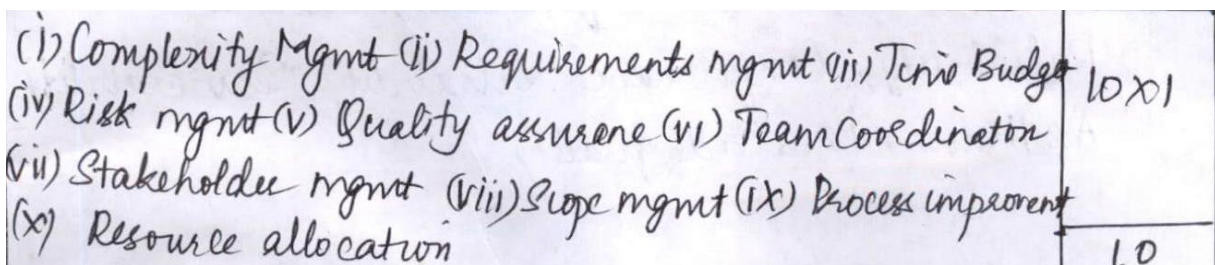 (i) Complexity Mgmt (ii) Requirements mgmt (iii) Time Budget 10x1
(iv) Risk mgmt (v) Quality assurane (vi) Team Coordinaton
(vii) Stakeholder mgmt (viii) Scope mgmt (ix) Process improvent
(x) Resource allocation
10